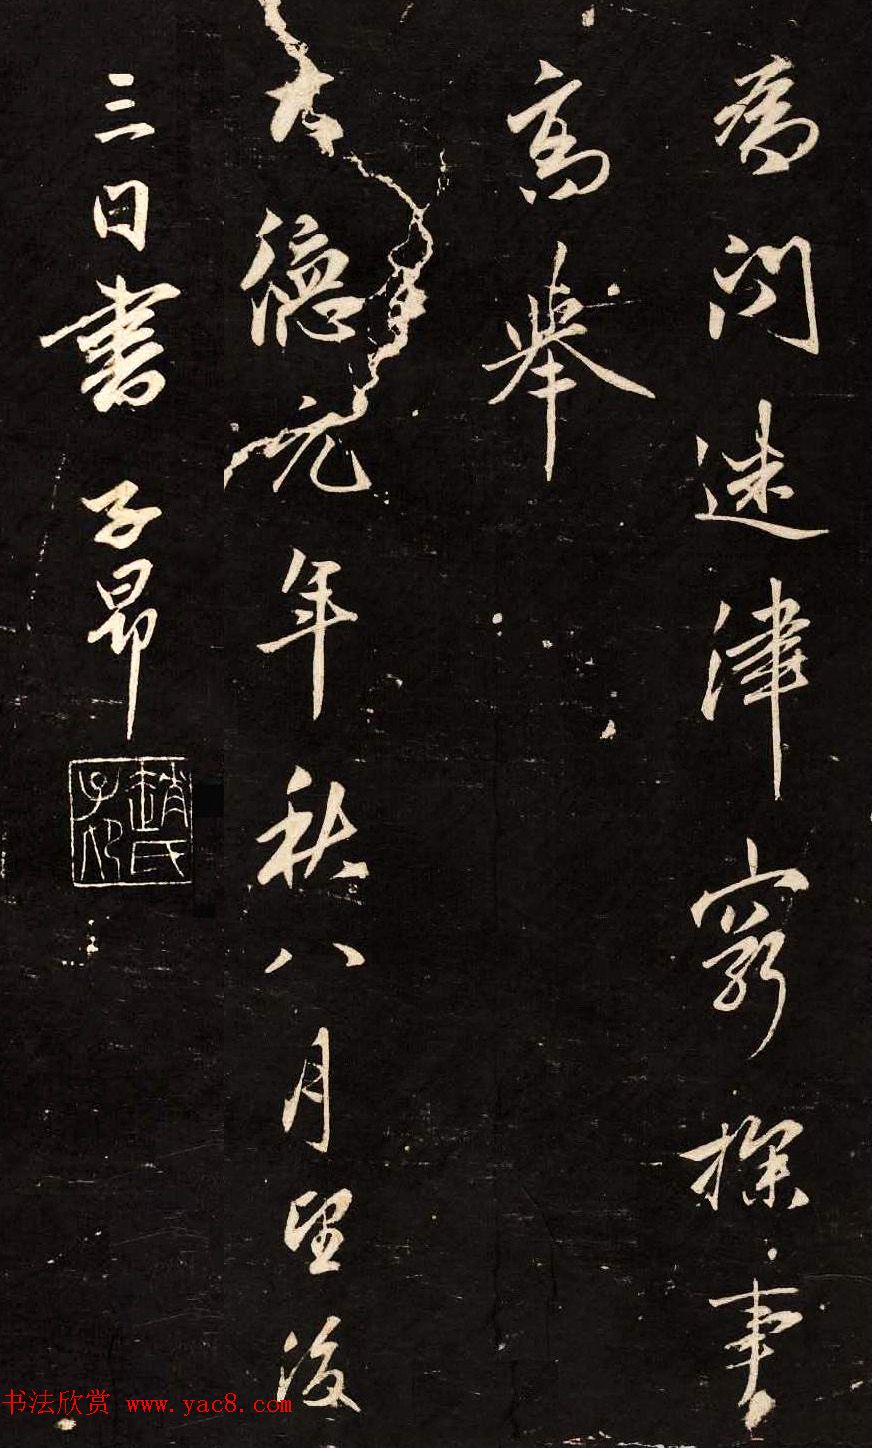 為問迷津窮探事
高舉
大德元年秋八月望後
三日書 子昂
趙氏子昂
书法欣赏 www.yac8.com